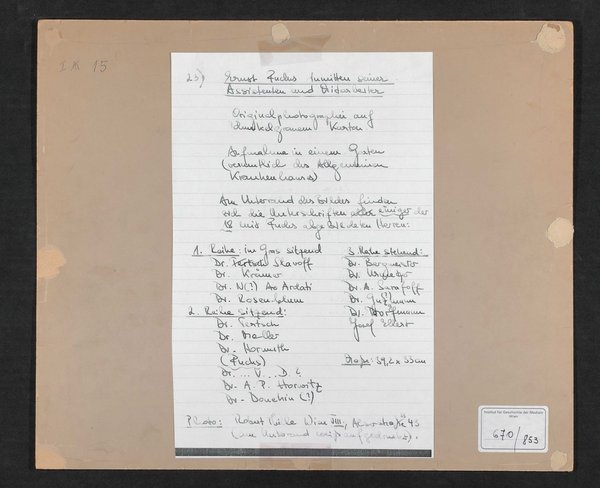 I K 15
23) Ernst Fuchs inmitten seiner
Assistenten und Mitarbeiter
Originalphotographie auf
dunkelgrauem Karton
Aufnahme in einem Garten
(vermutlich des Allgemeinen
Krankenhauses)
Am Unterrand des Bildes finden
sich die Unterschriften einiger der
18 mit Fuchs abgebildeten Herren:
1. Reihe: im Gras sitzend
Dr. Skavoff
Dr. Krämer
Dr. N(?) Ao Ardati
Dr. Rosenblum
2. Reihe sitzend:
Dr. Tertsch
Dr. Meller
Dr. Hormuth
(Fuchs)
Dr. ... V... D. ?
Dr. A. P. Horwitz
Dr. Donehin (?)
3. Reihe stehend:
Dr. Bergmeister
Dr.
Dr. A.
Dr.
Dr.
Josef
Maße: 39,2 x 53 cm
Photo: Robert Wien VIII., Alserstraße 45
(am Unterrand weiß aufgedruckt).
Institut für Geschichte der Medizin
Wien
670/853